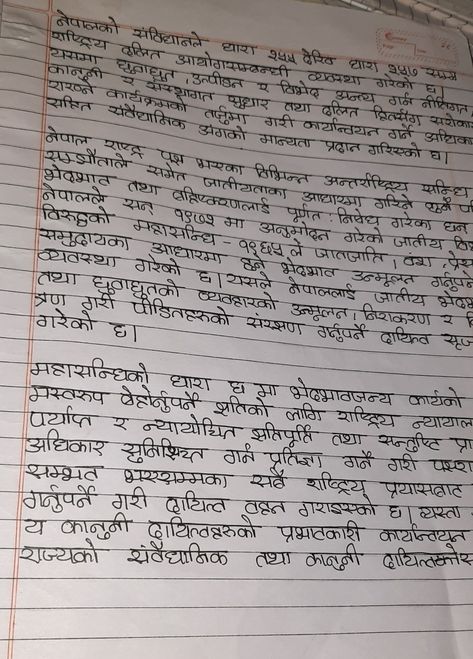 नेपालको संविधानले धारा २५५ देखि धारा २५७ सम्म
राष्ट्रिय दलित आयोगसम्बन्धी व्यवस्था गरेको छ।
यसमा छुवाछुत, उत्पीडन र विभेद अन्त्य गर्न नीतिगत
कानुनी र संस्थागत सुधार तथा दलित हितसँग सरोका
राख्ने कार्यक्रमको तर्जुमा गरी कार्यान्वयन गर्ने अधिका
सहित संवैधानिक अंगको मान्यता प्रदान गरिएको छ।
नेपाल राष्ट्र पक्ष भएका विभिन्न अन्तर्राष्ट्रिय सन्धि
सम्झौताले समेत जातीयताका आधारमा गरिने कुनै प
भेदभाव तथा वहिष्करणलाई पूर्णत: निषेध गरेका छन
नेपालले सन् १९७१ मा अनुमोदन गरेको जातीय वि
विरुद्धको महासन्धि - १९६५ ले जातजाति, वंश, प्रेस
समुदायका आधारमा हुने भेदभाव उन्मूलन गर्नुपर्ने
व्यवस्था गरेको छ। यसले नेपाललाई जातीय भेदभ
तथा छुवाछुतको व्यवहारको उन्मूलन, निराकरण र नि
त्रण गरी पीडितहरुको संरक्षण गर्नुपर्ने दायित्व सृज
गरेको छ।
महासन्धिको धारा ६ मा भेदभावजन्य कार्यको
मस्वरुप वेहोर्नुपर्ने क्षतिको लागि राष्ट्रिय न्यायाल
पर्याप्त र न्यायोचित क्षतिपूर्ति तथा सन्तुष्टि प्रा
अधिकार सुनिश्चित गर्न प्रतिज्ञा गर्ने गरी पक्षरा
सम्भव भएसम्मका सबै राष्ट्रिय प्रयासबाट
गर्नुपर्ने गरी दायित्व वहन गराइएको छ। यस्ता
य कानुनी दायित्वहरुको प्रभावकारी कार्यान्वयन
राज्यको संवैधानिक तथा कानुनी दायित्वभित्र